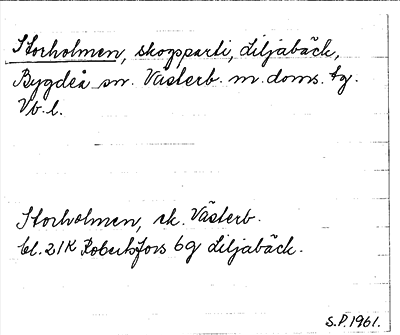 Storholmen, skogsparti, Liljabäck,
Bygdeå sn. Västerb. m. doms. tg.
Vb. l.
Storholmen, ek. Västerb.
bl. 21K Robertsfors 6g Liljabäck.
S.P. 1961.